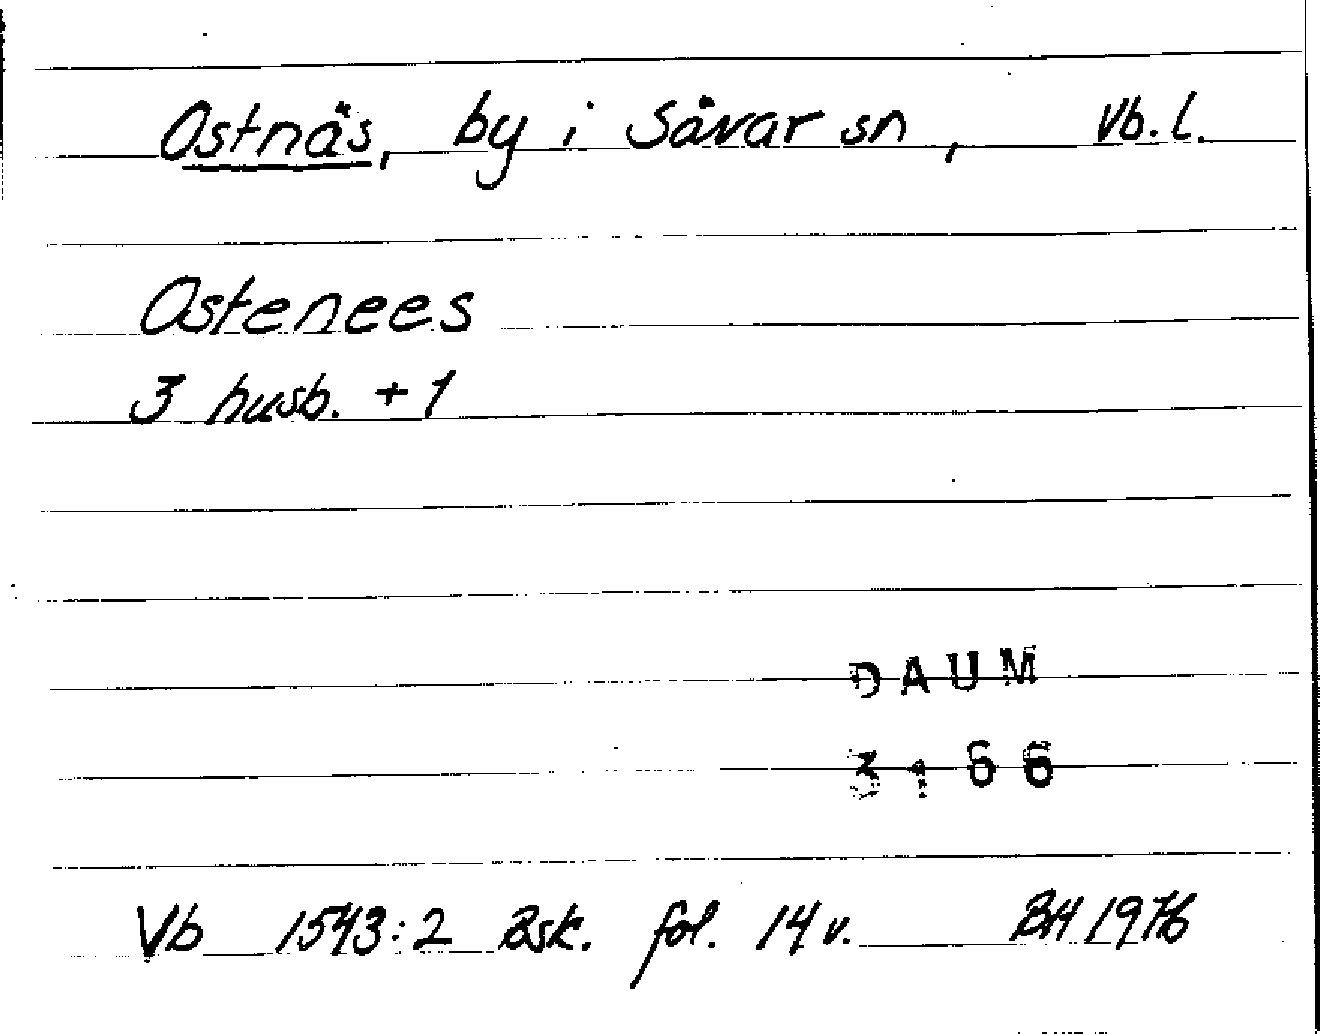 Ostnäs, by i Sävar sn, Vb.l.
Ostenees
3 husb. + 1
DAUM
3166
Vb 1543:2 Äsk. fol. 14 v. BH 1976